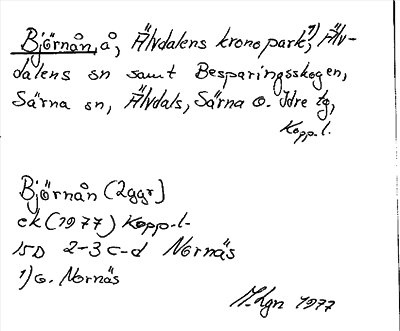 Björnån, å, Älvdalens kronopark,¹) Älv-
dalens sn samt Besparingsskogen,
Särna sn, Älvdals, Särna o. Idre tg,
Kopp.l.
Björnån (2ggr)
ek (1977) Kopp.l.
15D 2-3 c-d Nornäs
1) o. Nornäs
M.Lgn 1977